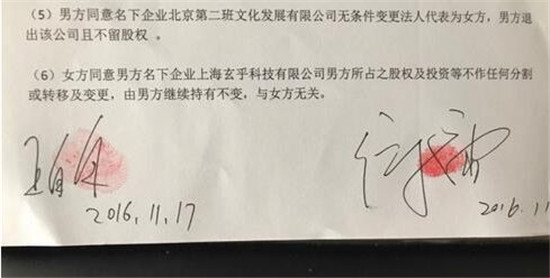 （5）男方同意名下企业北京第二班文化发展有限公司无条件变更法人代表为女方，男方退
出该公司且不留股权 。
（6）女方同意男方名下企业上海玄乎科技有限公司男方所占之股权及投资等不作任何分割
或转移及变更，由男方继续持有不变，与女方无关。
2016.11.17
2016.11